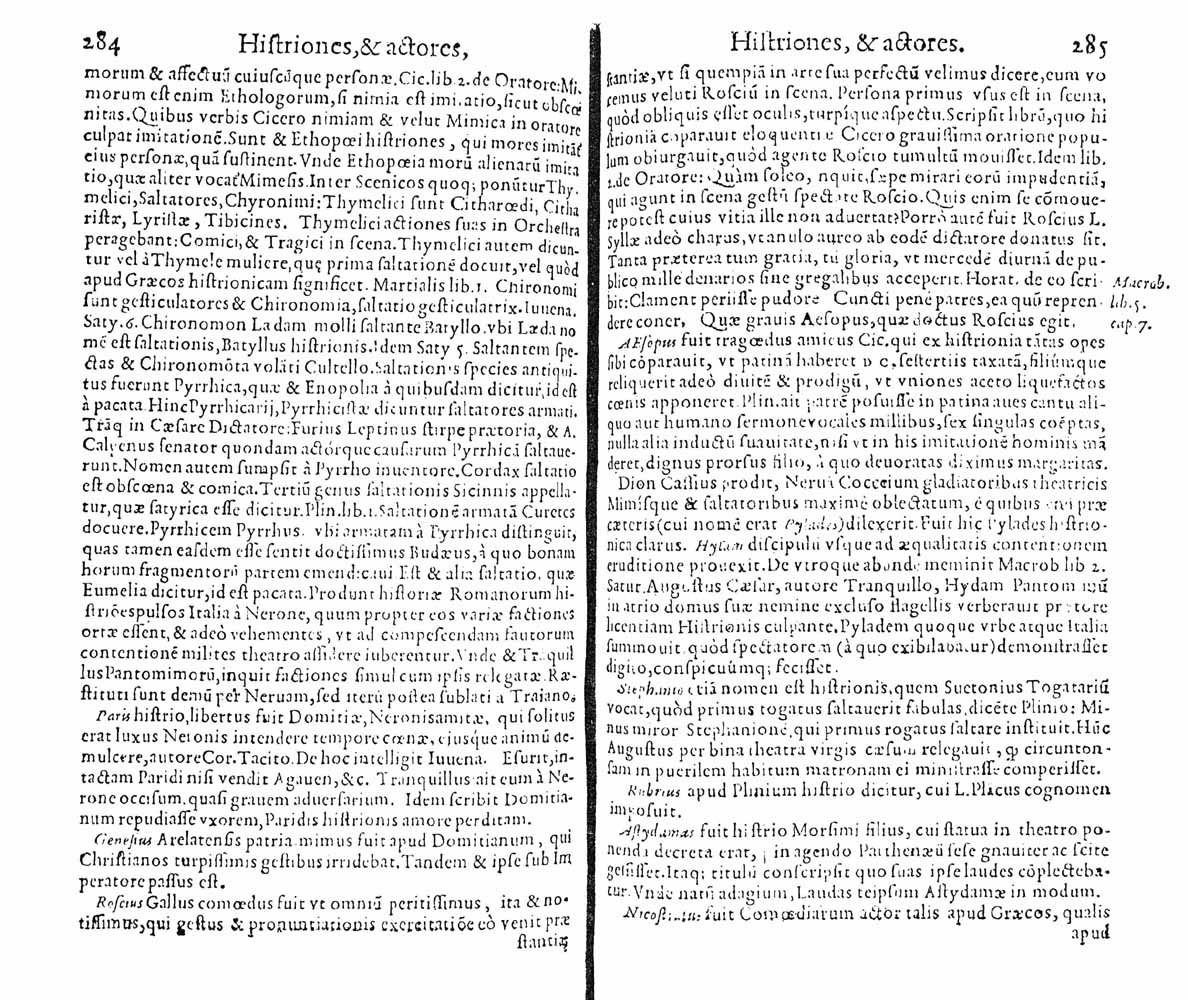 284 Histriones, & actores,
morum & affectuũ cuiuscũque personæ. Cic. lib. 2. de Oratore: Mi-
morum est enim Ethologorum, si nimia est imi.atio, sicut obscœ
nitas. Quibus verbis Cicero nimiam & velut Mimica in oratore
culpat imitationẽ. Sunt & Ethopœi histriones, qui mores imitãt̃
eius personæ, quã sustinent. Vnde Ethopœia morũ alienarũ imita
tio, quæ aliter vocat̃ Mimesis. Inter Scenicos quoq; ponũtur Thy-
melici, Saltatores, Chyronimi: Thymelici sunt Citharœdi, Citha
ristæ, Lyristæ, Tibicines. Thymelici actiones suas in Orchestra
peragebant: Comici, & Tragici in scena. Thymelici autem dicun-
tur vel à Thymele muliere, quę prima saltationẽ docuit, vel quòd
apud Græcos histrionicam significet. Martialis lib. 1. Chironomi
sunt gesticulatores & Chironomia, saltatio gesticulatrix. Iuuena.
Saty. 6. Chironomon Ladam molli saltante Batyllo. vbi Læda no
mẽ est saltationis, Batyllus histrionis. Idem Saty 5. Saltantem spe-
ctas & Chironomõta volãti Cultello. Saltationis species antiqui-
tus fuerunt Pyrrhica, quæ & Enopolia à quibusdam dicitur, id est
à pacata. Hinc Pyrrhicarij, Pyrrhicistæ dicuntur saltatores armati.
Trãq in Cæsare Dictatore: Furius Leptinus stirpe prætoria, & A.
Calpenus senator quondam actórque causarum Pyrrhicã saltaue-
runt. Nomen autem sumpsit à Pyrrho inuentore. Cordax saltatio
est obscœna & comica. Tertiũ genus saltationis Sicinnis appella-
tur, quæ satyrica esse dicitur. Plin. lib. 1. Saltationẽ armatã Curetes
docuere. Pyrrhicem Pyrrhus. vbi armatam à Pyrrhica distinguit,
quas tamen easdem esse sentit doctissimus Budæus, à quo bonam
horum fragmentorũ partem emendicaui Est & alia saltatio. quæ
Eumelia dicitur, id est pacata. Produnt historiæ Romanorum hi-
striões pulsos Italia à Nerone, quum propter eos variæ factiones
ortæ essent, & adeò vehementes, vt ad compescendam fautorum
contentionẽ milites theatro assidere iuberentur. Vnde & Tr. quil
lus Pantomimorũ, inquit factiones simul cum ipsis relegatæ. Ræ-
stituti sunt demũ per Neruam, sed iterũ postea sublati a Traiano.
Paris histrio, libertus fuit Domitiæ, Neronis amitæ, qui solitus
erat luxus Neronis intendere tempore cœnæ, ejusque animũ de-
mulcere, autore Cor. Tacito. De hoc intelligit Iuuena. Esurit, in-
tactam Paridi nisi vendit Agauen, &c. Tranquillus ait eum à Ne-
rone occisum. quasi grauem aduersarium. Idem scribit Domitia-
num repudiasse vxorem, Paridis histrionis amore perditam.
Genesius Arelatensis patria mimus fuit apud Domitianum, qui
Christianos turpissimis gestibus irridebat. Tandem & ipse sub Im
peratore passus est.
Roscius Gallus comœdus fuit vt omniũ peritissimus, ita & no-
tissimus, qui gestus & pronuntiationis exercitatiõe eò venit præ
stantię
Histriones, & actores. 285
stantiæ, vt si quempiã in arte sua perfectũ velimus dicere, eum vo
cemus veluti Rosciũ in scena. Persona primus vsus est in scena,
quòd obliquis esset oculis, turpique aspectu. Scripsit librũ, quo hi
strioniã cõparauit eloquentie Cicero grauissima oratione popu-
lum obiurgauit, quòd agente Roscio tumultũ mouisset. Idem lib.
2. de Oratore: Quàm soleo, nquit, sæpe mirari eorũ impudentiã,
qui agunt in scena gestũ spectãte Roscio. Quis enim se cõmoue-
re potest cuius vitia ille non aduertat? Porrò autẽ fuit Roscius L.
Syllæ adeò charus, vt anulo aureo ab eodẽ dictatore donatus sit.
Tanta præterea tum gratia, tũ gloria, vt mercedẽ diurnã de pu-
blico mille denarios sine gregalibus acceperit. Horat. de eo scri-
bit: Clament periisse pudorẽ Cuncti penè patres, ea quũ repren-
dere coner, Quæ grauis Aesopus, quæ doctus Roscius egit.
Macrob.
lib. 5.
cap. 7.
AEsopus fuit tragœdus amicus Cic. qui ex histrionia tãtas opes
sibi cõparauit, vt patinã haberet D C. sestertiis taxatã, filiúmque
reliquerit adeò diuitẽ & prodigũ, vt vniones aceto liquefactos
cœnis apponeret. Plin. ait patrẽ posuisse in patina aues cantu ali-
quo aut humano sermone vocales millibus, sex singulas coẽptas,
nulla alia inductũ suauitate, nisi vt in his imitationẽ hominis mã
deret, dignus prorsus filio, à quo deuoratas diximus margaritas.
Dion Cassius prodit, Neruã Cocceium gladiatoribus theatricis
Mimísque & saltatoribus maximè oblectatum, è quibus vni præ
cæteris (cui nomẽ erat Pylades) dilexerit. Fuit hic Pylades histrio-
nica clarus. Hylam discipulũ vsque ad æqualitatis contentionem
eruditione prouexit. De vtroque abunde meminit Macrob lib 2.
Satur. Augustus Cæsar, autore Tranquillo, Hydam Pantomimũ
in atrio domus suæ nemine excluso flagellis verberauit prętore
licentiam Histrionis culpante. Pyladem quoque vrbe atque Italia
summouit quòd spectatorem (à quo exibilabatur) demonstrasset
digito, conspicuúmq; fecisset.
Stephanio etiã nomen est histrionis, quem Suetonius Togatariũ
vocat, quòd primus togatus saltauerit fabulas, dicẽte Plinio: Mi-
nus miror Stephanionẽ, qui primus rogatus saltare instituit. Hũc
Augustus per bina theatra virgis cæsum relegauit, ꝙ circunton-
sam in puerilem habitum matronam ei ministrasse comperisset.
Rubrius apud Plinium histrio dicitur, cui L. Plicus cognomen
imposuit.
Astydamas fuit histrio Morsimi filius, cui statua in theatro po-
nendi decreta erat, ꝙ in agendo Parthenæũ sese gnauiter ac scite
gessisset. Itaq; titulũ conscripsit quo suas ipse laudes cõplecteba-
tur. Vnde natũ adagium, Laudas teipsum Astydamæ in modum.
Nicostratus fuit Comœdiarum actor talis apud Græcos, qualis
apud